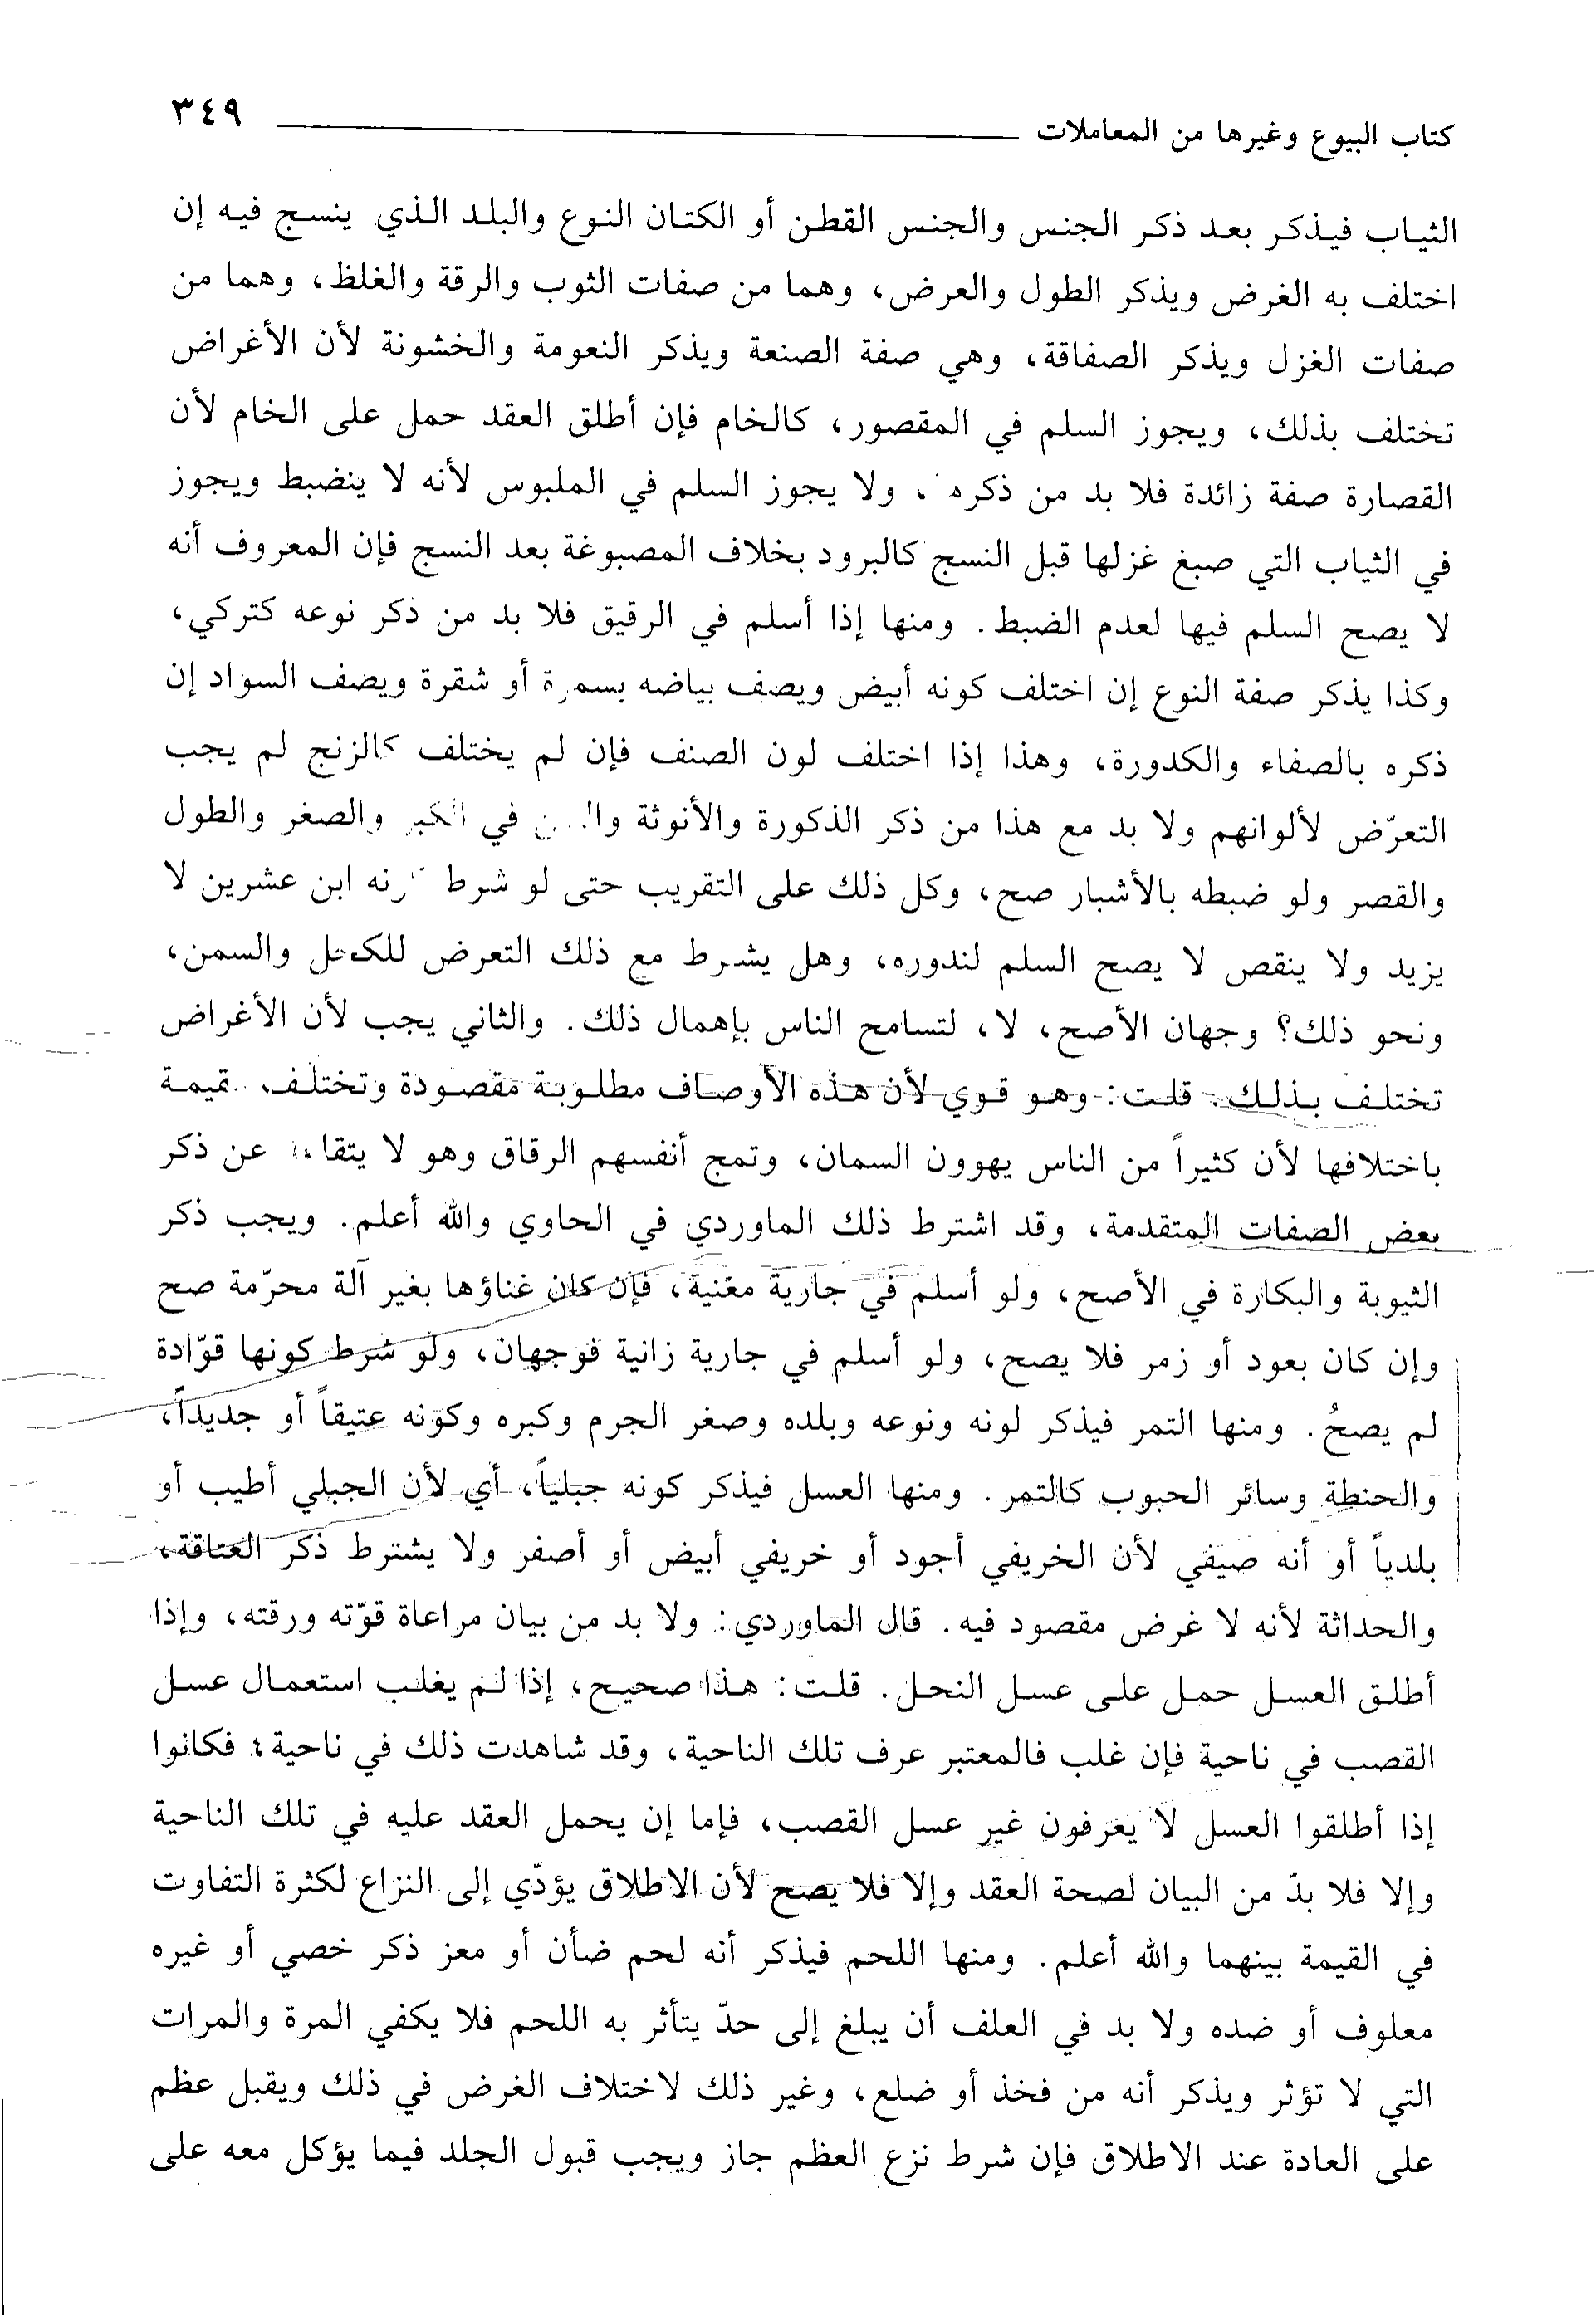 كتاب البيوع وغيرها من المعاملات ٣٤٩
الثياب فيذكر بعد ذكر الجنس والجنس القطن أو الكتان النوع والبلد الذي ينسج فيه إن
اختلف به الغرض ويذكر الطول والعرض، وهما من صفات الثوب والرقة والغلظ، وهما من
صفات الغزل ويذكر الصفاقة، وهي صفة الصنعة ويذكر النعومة والخشونة لأن الأغراض
تختلف بذلك، ويجوز السلم في المقصور، كالخام فإن أطلق العقد حمل على الخام لأن
القصارة صفة زائدة فلا بد من ذكره، ولا يجوز السلم في الملبوس لأنه لا ينضبط ويجوز
في الثياب التي صبغ غزلها قبل النسج كالبرود بخلاف المصبوغة بعد النسج فإن المعروف أنه
لا يصح السلم فيها لعدم الضبط. ومنها إذا أسلم في الرقيق فلا بد من ذكر نوعه كتركي،
وكذا يذكر صفة النوع إن اختلف كونه أبيض ويصف بياضه بسمرة أو شقرة ويصف السواد إن
ذكره بالصفاء والكدورة، وهذا إذا اختلف لون الصنف فإن لم يختلف كالزنج لم يجب
التعرّض لألوانهم ولا بد مع هذا من ذكر الذكورة والأنوثة في الكبر والصغر والطول
والقصر ولو ضبطه بالأشبار صح، وكل ذلك على التقريب حتى لو شرط كونه ابن عشرين لا
يزيد ولا ينقص لا يصح السلم لندوره، وهل يشرط مع ذلك التعرض للكحل والسمن،
ونحو ذلك؟ وجهان الأصح، لا، لتسامح الناس بإهمال ذلك. والثاني يجب لأن الأغراض
تختلف بذلك. قلت: وهو قوي لأن هذه الأوصاف مطلوبة مقصودة وتختلف القيمة
باختلافها لأن كثيراً من الناس يهوون السمان، وتمج أنفسهم الرقاق وهو لا يتقاعد عن ذكر
بعض الصفات المتقدمة، وقد اشترط ذلك الماوردي في الحاوي والله أعلم. ويجب ذكر
الثيوبة والبكارة في الأصح، ولو أسلم في جارية مغنية، فإن كان غناؤها بغير آلة محرّمة صح
وإن كان بعود أو زمر فلا يصح، ولو أسلم في جارية زانية فوجهان، ولو شرط كونها قوّادة
لم يصحُ. ومنها التمر فيذكر لونه ونوعه وبلده وصغر الجرم وكبره وكونه عتيقاً أو جديداً،
والحنطة وسائر الحبوب كالتمر. ومنها العسل فيذكر كونه جبلياً، أي لأن الجبلي أطيب أو
بلدياً أو أنه صيفي لأن الخريفي أجود أو خريفي أبيض أو أصفر ولا يشترط ذكر العتاقة،
والحداثة لأنه لا غرض مقصود فيه. قال الماوردي: ولا بد من بيان مراعاة قوّته ورقته، وإذا
أطلق العسل حمل على عسل النحل. قلت: هذا صحيح، إذا لم يغلب استعمال عسل
القصب في ناحية فإن غلب فالمعتبر عرف تلك الناحية، وقد شاهدت ذلك في ناحية؛ فكانوا
إذا أطلقوا العسل لا يعرفون غير عسل القصب، فإما إن يحمل العقد عليه في تلك الناحية
وإلا فلا بدّ من البيان لصحة العقد وإلا فلا يصح لأن الاطلاق يؤدّي إلى النزاع لكثرة التفاوت
في القيمة بينهما والله أعلم. ومنها اللحم فيذكر أنه لحم ضأن أو معز ذكر خصي أو غيره
معلوف أو ضده ولا بد في العلف أن يبلغ إلى حدّ يتأثر به اللحم فلا يكفي المرة والمرات
التي لا تؤثر ويذكر أنه من فخذ أو ضلع، وغير ذلك لاختلاف الغرض في ذلك ويقبل عظم
على العادة عند الاطلاق فإن شرط نزع العظم جاز ويجب قبول الجلد فيما يؤكل معه على